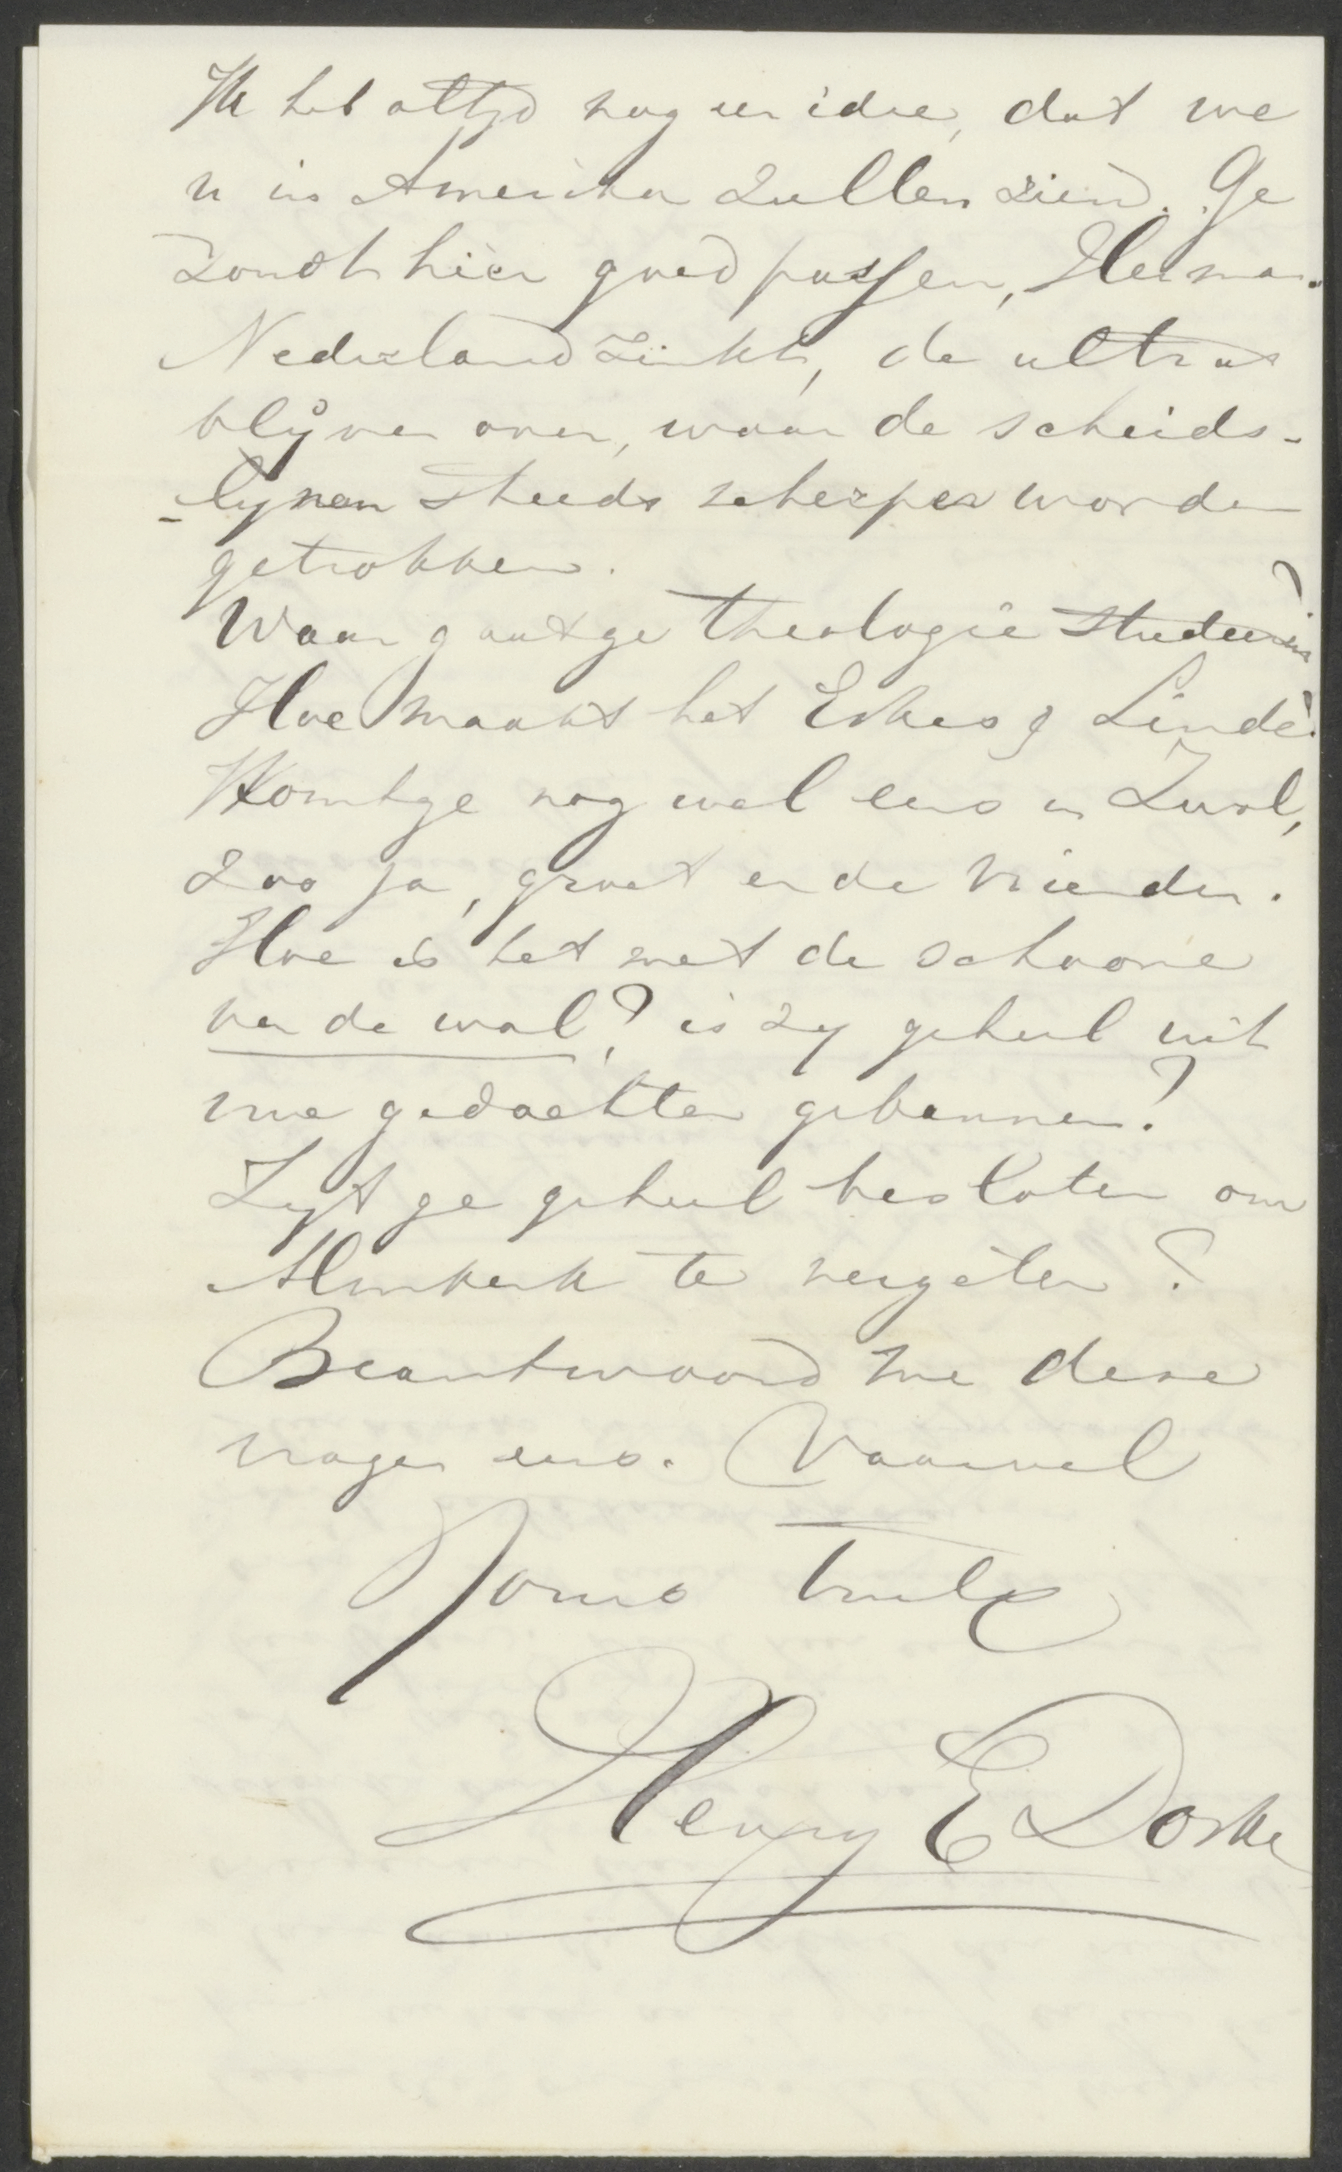 Ik heb altyd nog een idee, dat we
u in Amerika zullen zien. Ge
zoudt hier goed passen, Herman.
Nederland zinkt, de ultras
blyven over, waar de scheids-
-lynen steeds scherper worden
getrokken.
Waar gaat ge theologie studeeren?
Hoe maakt het Eskes & Linde?
Komt ge nog wel eens in Zwol,
zoo ja, groet er de vrienden.
Hoe is het met de schoone
van de wal? is zy geheel uit
uwe gedachten gebannen?
Zyt ge geheel besloten om
Almkerk te vergeten?
Beantwoord me deze
vragen eens. Vaarwel
Yours truly
Henry E Dosker